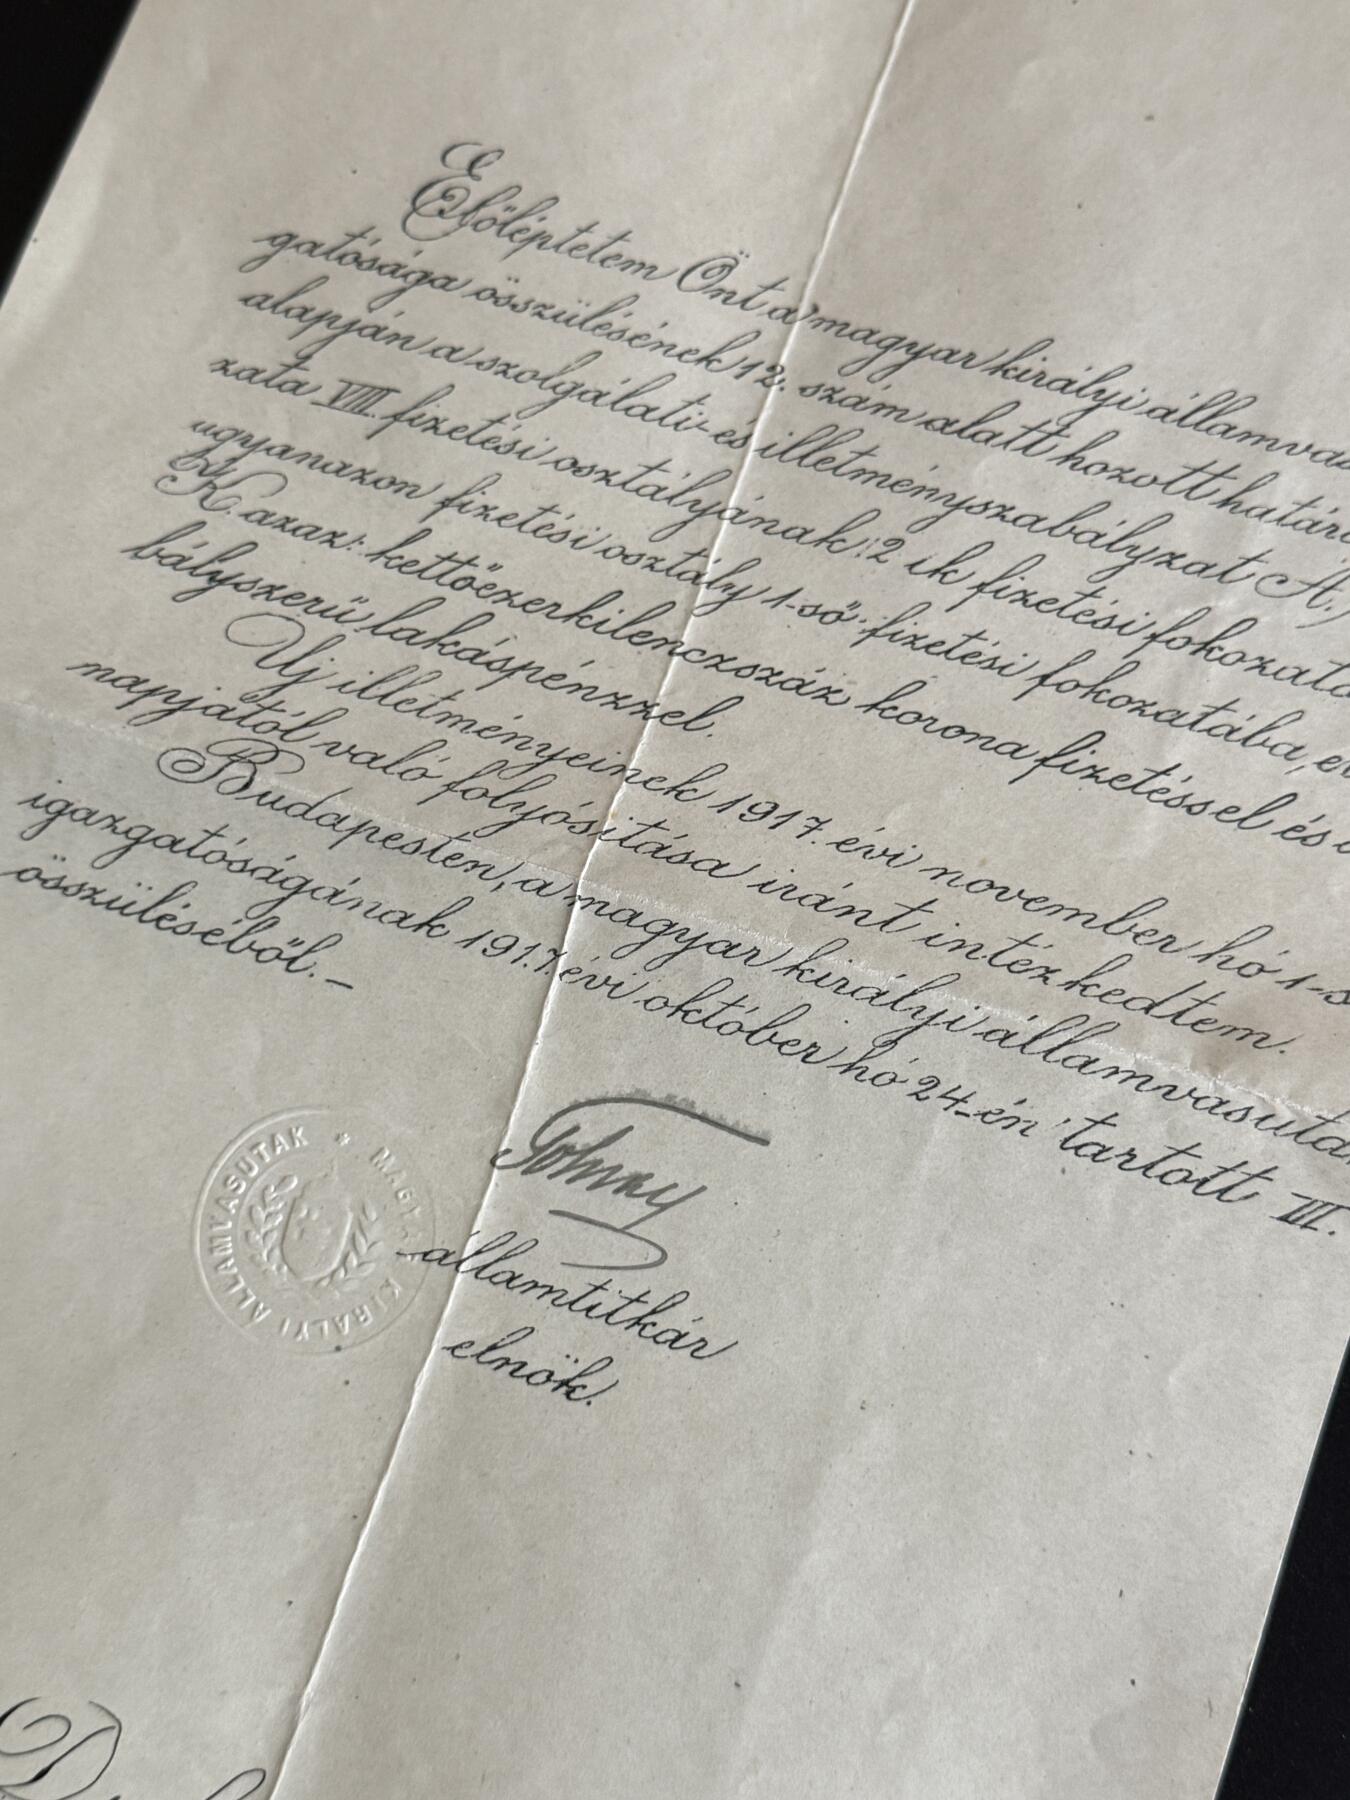 Előléptetem Önt a magyar királyi államvas
gatósága összülésének 12. szám alatt hozott határo
alapján a szolgálati és illetményszabályzat A.)
zata VIII. fizetési osztályának 2 ik fizetési fokozatá
ugyanazon fizetési osztály 1-ső fizetési fokozatába, e
K. azaz: kettőezerkilenczszáz korona fizetéssel és
bályszerű lakáspénzzel.
Uj illetményeinek 1917. évi november hó 1-s
napjától való folyósitása iránt intézkedtem.
Budapesten, a magyar királyi államvasuta
igazgatóságának 1917. évi október hó 24-én tartott III.
összüléséből.-
államtitkár
elnök.
M. KIRÁLYI ÁLLAMVASUTAK